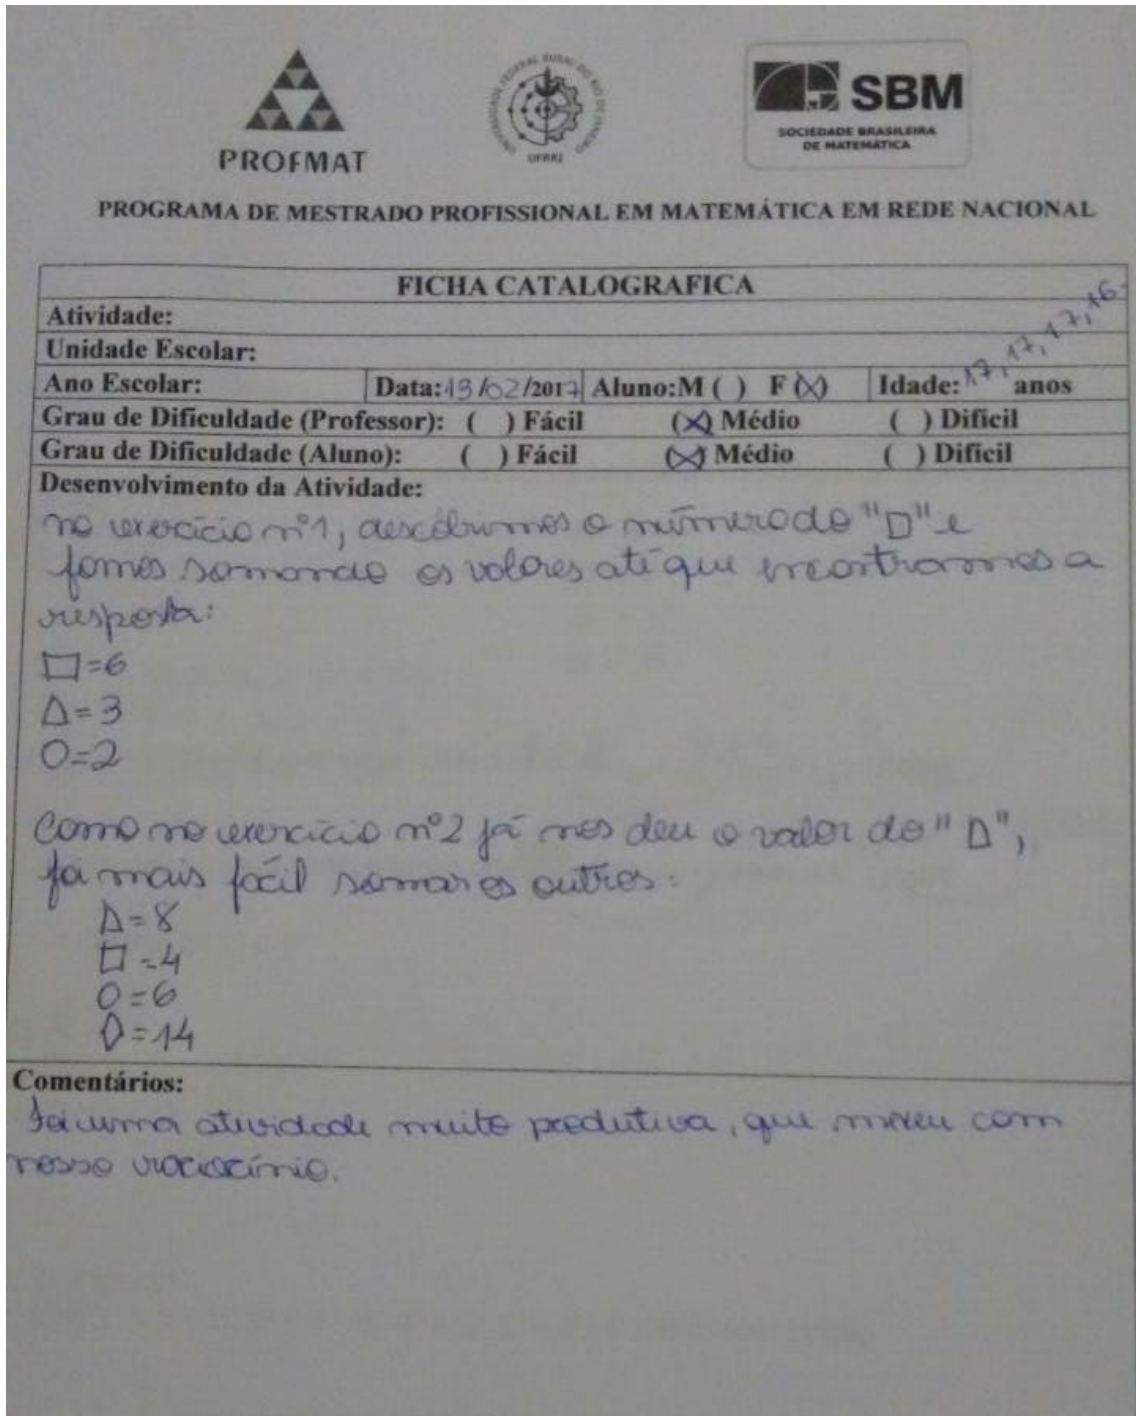 PROFMAT
UNIVERSIDADE FEDERAL RURAL DO RIO DE JANEIRO
UFRRJ
SBM
SOCIEDADE BRASILEIRA
DE MATEMÁTICA
PROGRAMA DE MESTRADO PROFISSIONAL EM MATEMÁTICA EM REDE NACIONAL
FICHA CATALOGRAFICA
Atividade:
Unidade Escolar:
Ano Escolar: Data:13/02/2017 Aluno:M ( ) F (X) Idade: 17, 17, 17, 16 anos
Grau de Dificuldade (Professor): ( ) Fácil (X) Médio ( ) Difícil
Grau de Dificuldade (Aluno): ( ) Fácil (X) Médio ( ) Difícil
Desenvolvimento da Atividade:
no exercício nº1, descobrimos o número do "□" e
fomos somando os valores até que encontramos a
resposta:
□=6
Δ=3
O=2
Como no exercício nº2 já nos deu o valor do "Δ",
foi mais fácil somar os outros:
Δ=8
□=4
O=6
◊=14
Comentários:
Foi uma atividade muito produtiva, que mexeu com
nosso raciocínio.